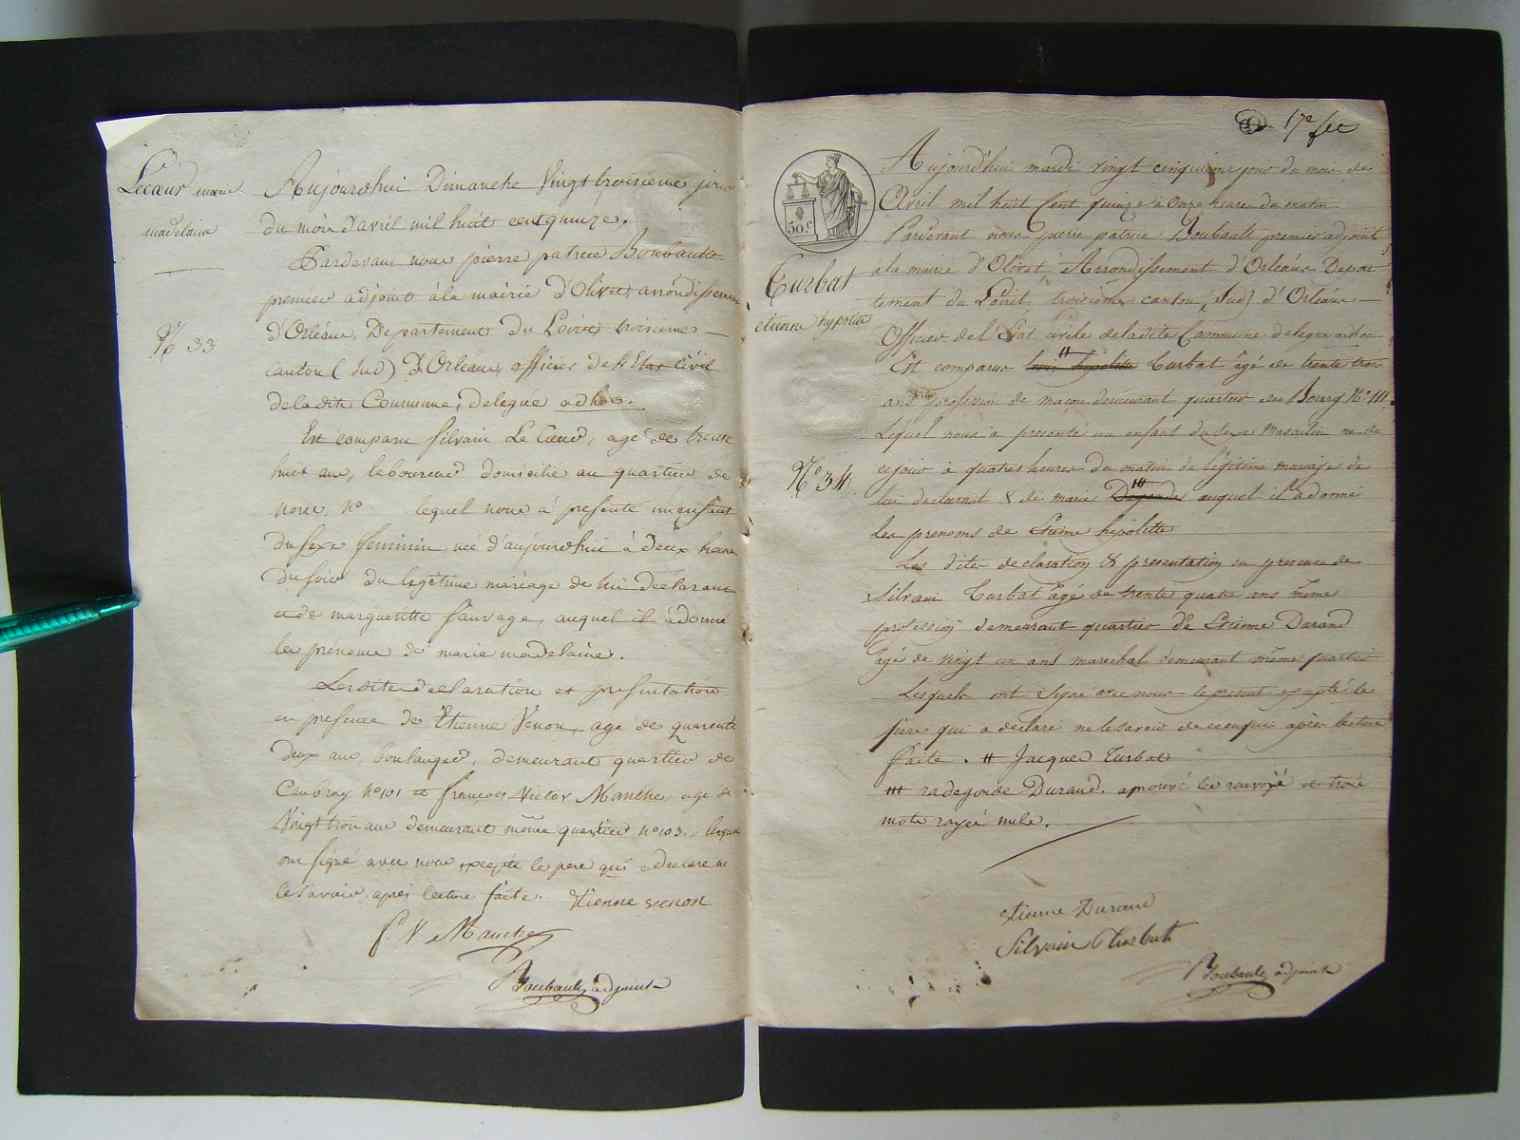 Lecœur marie
madelaine
N° 33
Aujourdhui Dimanche Vingt troisieme jour
du mois d'avril mil huit cent quinze.
Pardevant nous pierre patrice Boubault
premier adjoint à la mairie d'Olivet, arrondissement
d'Orléans, Departement du Loiret troisieme
canton (sud) d'Orléans, officier de l'Etat Civil
de la dite Commune, delegue adhoc.
Est comparu Silvain Le Cœur, agé de trente
huit ans, laboureur domicilié au quartier de
n° lequel nous à presenté un enfant
du sexe feminin né d'aujourdhui à Deux heures
du soir du legitime mariage de lui Declarant
et de margueritte Sauvage, auquel il à donné
les prenoms de marie madelaine.
Les dites declaration et presentation
en presence de Etienne Venon, agé de quarente
deux ans, boulanger, demeurant quartier de
Caubray n° 101 et francois Victor Manthe agé de
Vingt trois ans demeurant même quartier n° 103. lesquels
ont signé avec nous excepté le pere qui a declaré ne
le savoir apres lecture faite. Etienne venon
f. V. Manthe
Boubault adjoint
17e
50 c
Turbat
etienne hypolite
N° 34.
Aujourdhui mardi vingt cinquieme jour du mois de
Avril mil huit Cent quinze à onze heures du matin
Pardevant nous pierre patrice Boubault premier adjoint
à la mairie d'Olivet, Arrondissement d'Orléans Depar
tement du Loiret, troisieme canton (sud) d'Orléans
Officier de l'Etat civile de la dite Commune delegué adhoc
Est comparus # hypolitte Turbat âgé de trente trois
ans profession de maçon demeurant quartier du Bourg N° 111.
Lequel nous à presenté un enfant du sexe Masculin né de
ce jour à quatre heures du matin de légitime mariage de
lui declarant & de marie # auquel il a donné
les prenoms de Etienne hipolitte
Les dites declaration & presentation en presence de
Silvain Turbat âgé de trente quatre ans même
profession demeurant quartier de Etienne Durand
âgé de vingt un ans marechal demeurant même quartier
Lesquels ont signé avec nous le present excepté le
pere qui a declaré ne le savoir de ce enquis après lecture
faite. # Jacques Turbat
## radegonde Durand. aprouvé les renvoyé et trois
mots rayé nuls.
etienne Durand
Silvain Turbat
Boubault adjoint